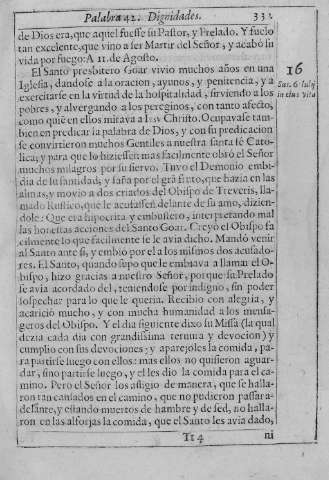 Palabra 42. Dignidades. 331
de Dios era, que aquel fuesse su Pastor, y Prelado. Y fuelo
tan excelente, que vino a ser Martir del Señor, y acabó su
vida por fuego: A 11. de Agosto.
El Santo presbitero Goar vivio muchos años en una
Iglesia, dandose a la oracion, ayunos, y penitencia, y a
exercitarse en la virtud de la hospitalidad, sirviendo a los
pobres, y alvergando a los peregrinos, con tanto afecto,
como quiē en ellos mirava a Iesu Christo. Ocupavase tam-
bien en predicar la palabra de Dios, y con su predicacion
se convirtieron muchos Gentiles a nuestra santa fè Cato-
lica; y para que lo hiziessen mas facilmente obró el Señor
muchos milagros por su siervo. Tuvo el Demonio embi-
dia de su santidad, y saña por el grā fruto, que hazia en las
almas, y movio a dos criados del Obispo de Treveris, lla-
mado Rustico, que le acusassen delante de su amo, dizien-
dole: Que era hipocrita y embustero, interpretando mal
las honestas acciones del Santo Goar. Creyó el Obispo fa
cilmente lo que facilmente se le avia dicho. Mandó venir
al Santo ante si, y embió por el a los mismos dos acusado-
res. El Santo, quando supo que le embiava a llamar el Ob-
ispo, hizo gracias a nuestro Señor, porque su Prelado
se avia acordado del, teniendose por indigno, sin poder
sospechar para lo que le queria. Recibio con alegria, y
acarició mucho, y con mucha humanidad a los mensa-
geros del Obispo. Y el dia siguiente dixo su Missa (la qual
dezia cada dia con grandissima ternura y devocion) y
cumplio con sus devociones; y aparejoles la comida, pa-
ra partirse luego con ellos: mas ellos no quisieron aguar-
dar, sino partirse luego, y el les dio la comida para el ca-
mino. Pero el Señor los afligio de manera, que se halla-
ron tan cansados en el camino, que no pudieron passar a-
delante, y estando muertos de hambre y de sed, no halla-
ron en las alforjas la comida, que el Santo les avia dado,
Tt 4 ni
16
Sur. 6 July
in eius vita